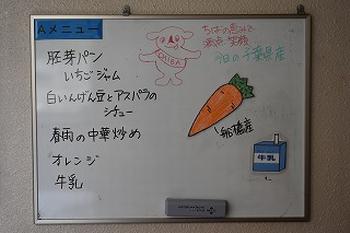 Aメニュー
胚芽パン
いちごジャム
白いんげん豆とアスパラの
シチュー
春雨の中華炒め
オレンジ
牛乳
CHIBA
ちばの恵みで
満点笑顔
今日の千葉県産
船橋産
牛乳